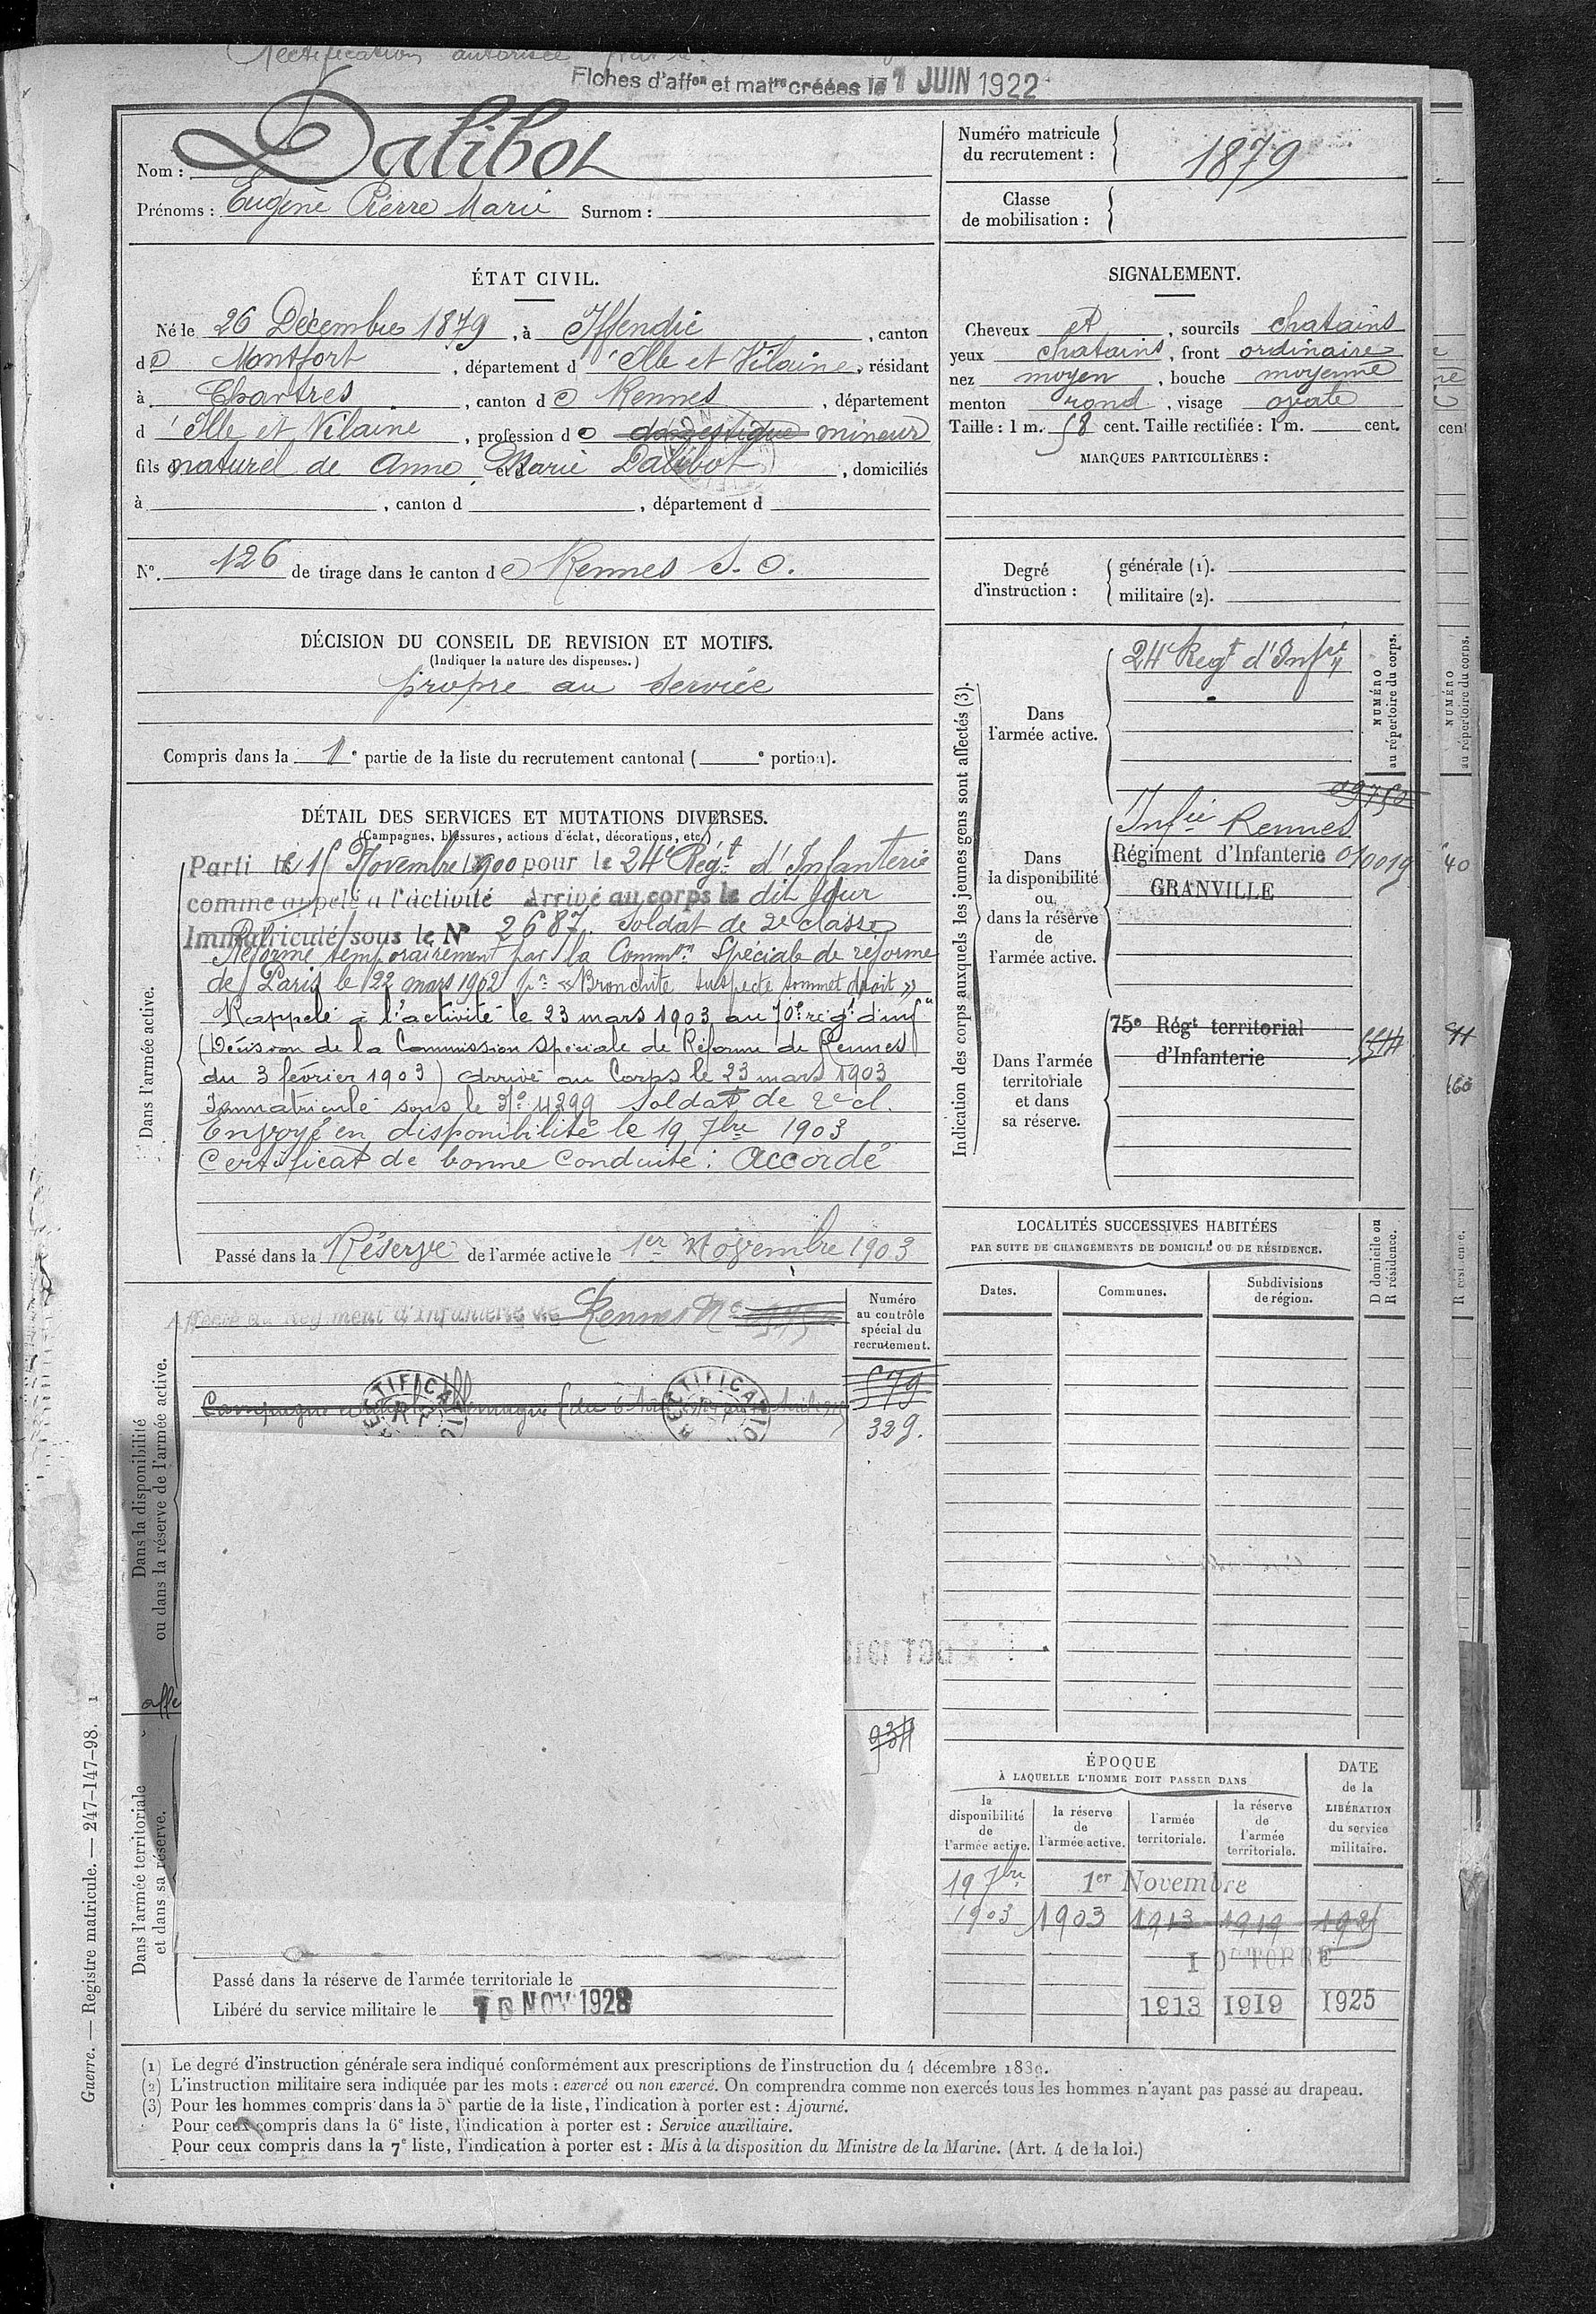 Rectification autorisée
Fiches d'affon et matre créées le 7 JUIN 1922
Nom : Dalibot
Prénoms : Eugène Pierre Marie Surnom :
Numéro matricule du recrutement : 1879
Classe de mobilisation :
ÉTAT CIVIL.
Né le 26 Décembre 1879, à Iffendic, canton
de Montfort, département d'Ille et Vilaine, résidant
à Chartres, canton de Rennes, département
d'Ille et Vilaine, profession de domestique mineur
fils naturel de Anne Marie Dalibot, domiciliés
à , canton d , département d
N° 126 de tirage dans le canton de Rennes S. O.
SIGNALEMENT.
Cheveux et, sourcils chatains
yeux chatains, front ordinaire
nez moyen, bouche moyenne
menton rond, visage ovale
Taille : 1 m. 58 cent. Taille rectifiée : 1 m. cent.
MARQUES PARTICULIÈRES :
Degré d'instruction :
générale (1).
militaire (2).
DÉCISION DU CONSEIL DE REVISION ET MOTIFS.
(Indiquer la nature des dispenses.)
propre au service
Compris dans la 1e partie de la liste du recrutement cantonal ( e portion).
DÉTAIL DES SERVICES ET MUTATIONS DIVERSES.
(Campagnes, blessures, actions d'éclat, décorations, etc.)
Dans l'armée active.
Parti le 15 Novembre 1900 pour le 24e Régt d'Infanterie
comme appelé à l'activité Arrivé au corps le dit jour
Immatriculé sous le N° 2687. Soldat de 2e classe
Réformé temporairement par la Common Spéciale de réforme
de Paris le 22 mars 1902 pr « Bronchite suspecte sommet droit »
Rappelé à l'activité le 23 mars 1903 au 70e régt d'infie
(Décision de la Commission Spéciale de Réforme de Rennes
du 3 février 1903) arrivé au Corps le 23 mars 1903
Immatriculé sous le N° 4299 Soldat de 2e cl.
Envoyé en disponibilité le 19 7bre 1903
Certificat de bonne Conduite : Accordé
Passé dans la Réserve de l'armée active le 1er Novembre 1903
Indication des corps auxquels les jeunes gens sont affectés (3).
NUMÉRO au répertoire du corps.
Dans l'armée active.
24 Regt d'Infie
09750
Dans la disponibilité ou dans la réserve de l'armée active.
Infie Rennes
Régiment d'Infanterie 010019
GRANVILLE
Dans l'armée territoriale et dans sa réserve.
75e Régt territorial
d'Infanterie
LOCALITÉS SUCCESSIVES HABITÉES
PAR SUITE DE CHANGEMENTS DE DOMICILE OU DE RÉSIDENCE.
Dates. Communes. Subdivisions de région. D domicile ou R résidence.
Dans la disponibilité ou dans la réserve de l'armée active.
Affecté au Régiment d'Infanterie de Rennes No
Numéro au contrôle spécial du recrutement.
579
Campagne contre l'Allemagne (du 6 Août
RECTIFICATION
RECTIFICATION
329.
affe
934
Dans l'armée territoriale et dans sa réserve.
Passé dans la réserve de l'armée territoriale le
Libéré du service militaire le 10 NOV 1928
ÉPOQUE
À LAQUELLE L'HOMME DOIT PASSER DANS
la disponibilité de l'armée active.
la réserve de l'armée active.
l'armée territoriale.
la réserve de l'armée territoriale.
DATE de la LIBÉRATION du service militaire.
19 7bre 1er Novembre
1903 1903 1913 1919 1925
1 OCTOBRE
1913 1919 1925
(1) Le degré d'instruction générale sera indiqué conformément aux prescriptions de l'instruction du 4 décembre 1889.
(2) L'instruction militaire sera indiquée par les mots : exercé ou non exercé. On comprendra comme non exercés tous les hommes n'ayant pas passé au drapeau.
(3) Pour les hommes compris dans la 5e partie de la liste, l'indication à porter est : Ajourné.
Pour ceux compris dans la 6e liste, l'indication à porter est : Service auxiliaire.
Pour ceux compris dans la 7e liste, l'indication à porter est : Mis à la disposition du Ministre de la Marine. (Art. 4 de la loi.)
Guerre. — Registre matricule. — 247-147-98. 1